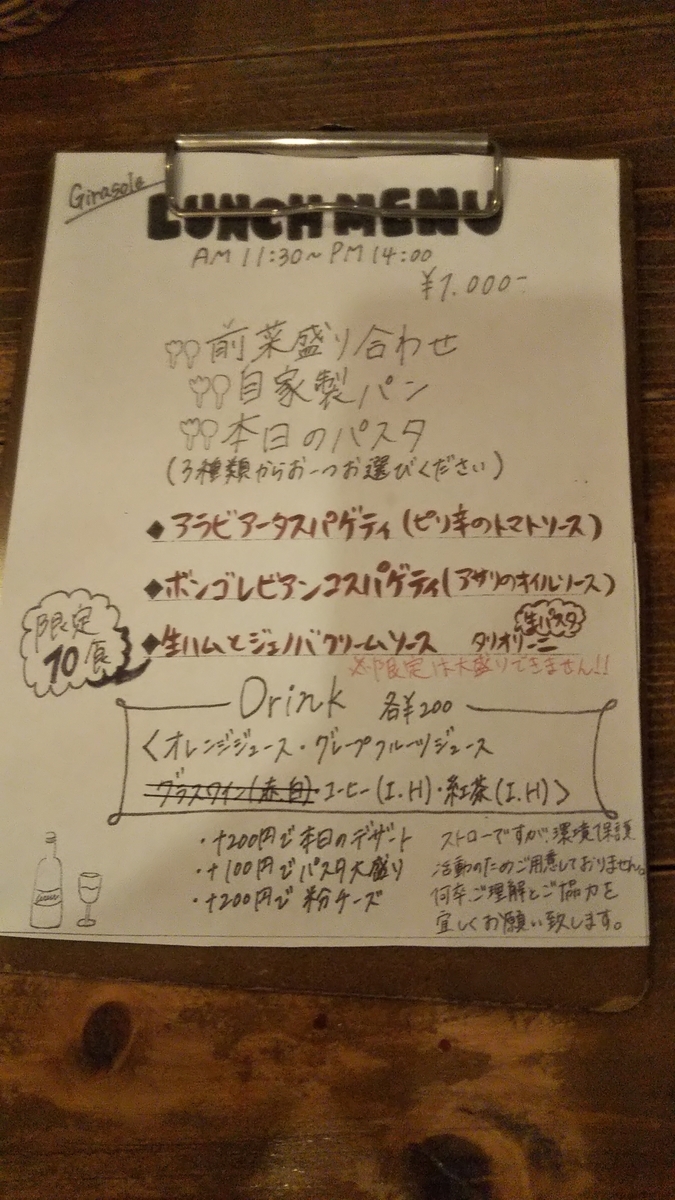 Girasole
LUNCH MENU
AM 11:30～PM 14:00
¥1.000-
前菜盛り合わせ
自家製パン
本日のパスタ
(3種類からお一つお選びください)
◆アラビアータスパゲティ(ピリ辛のトマトソース)
◆ボンゴレビアンコスパゲティ(アサリのオイルソース)
限定
10食
◆生ハムとジェノバクリームソース 生パスタ タリオリーニ
※限定は大盛りできません!!
Drink 各¥200
<オレンジジュース・グレープフルーツジュース
グラスワイン(赤.白)・コーヒー(I.H)・紅茶(I.H)>
・+200円で本日のデザート
・+100円でパスタ大盛り
・+200円で粉チーズ
ストローですが、環境保護
活動のためご用意しておりません。
何卒ご理解とご協力を
宜しくお願い致します。